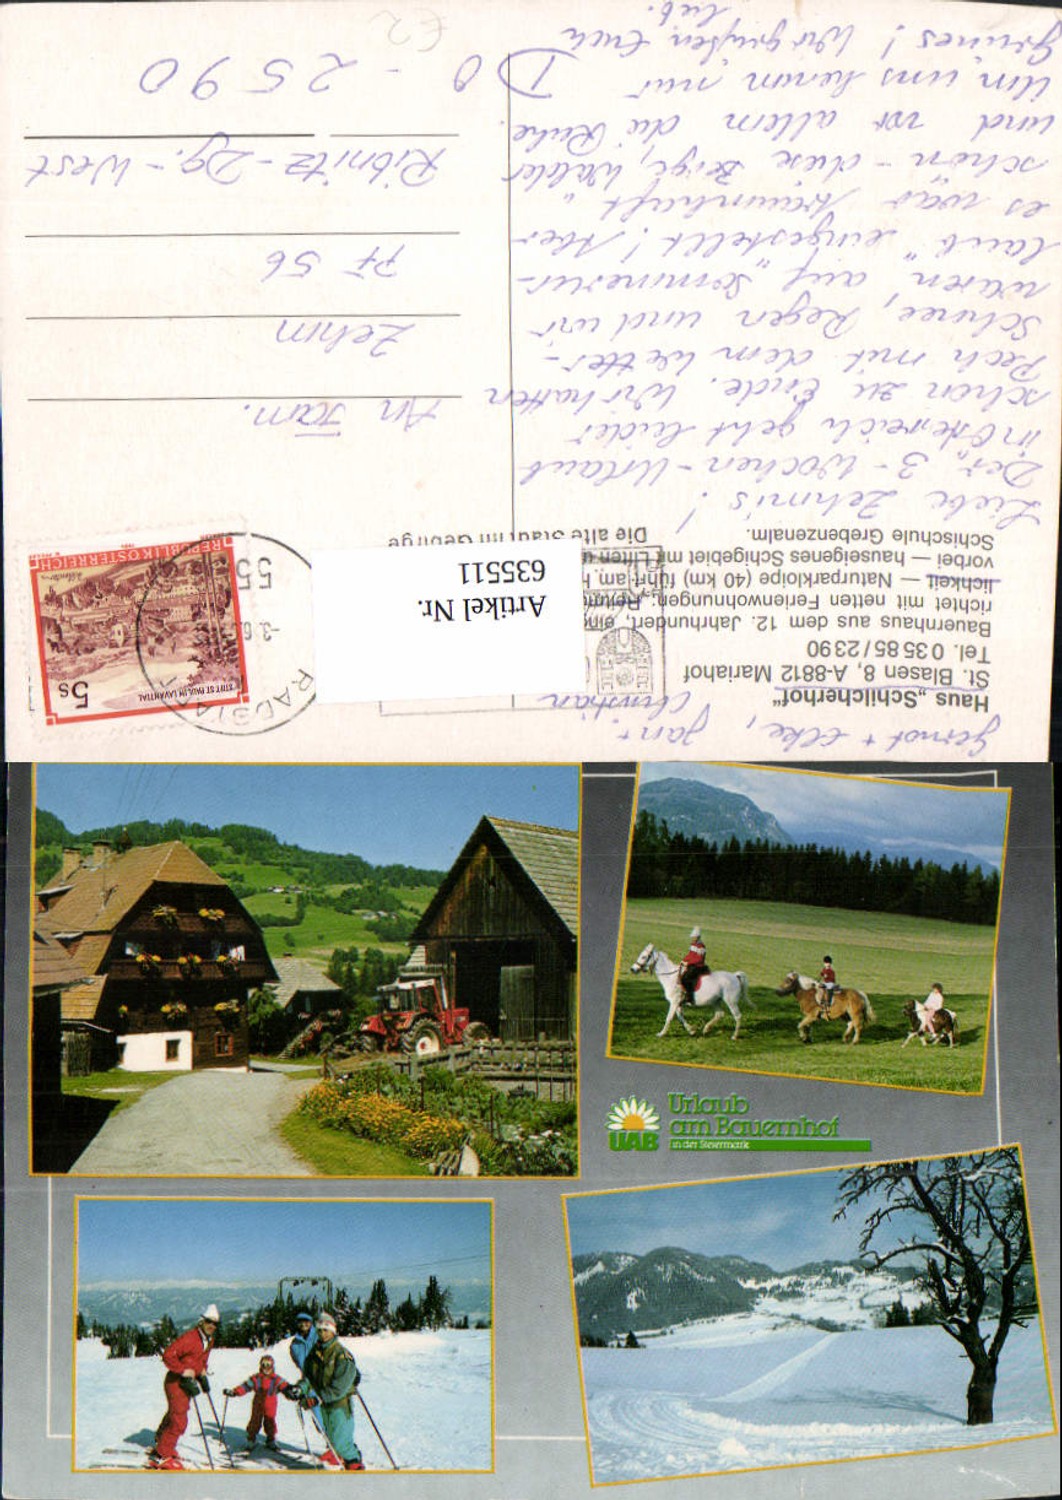 Haus „Schilcherhof“
St. Blasen 8, A-8812 Mariahof
Tel. 0 35 85 / 23 90
Bauernhaus aus dem 12. Jahrhundert,
richtet mit netten Ferienwohnungen;
lichkeit — Naturparkloipe (40 km) führt am
vorbei — hauseigenes Schigebiet mit Liften
Schischule Grebenzenalm.
Liebe Zehms!
Der „3-Wochen-Urlaub
in Österreich geht leider
schon zu Ende. Wir hatten
Pech mit dem Wetter -
Schnee, Regen und wir
waren auf „Sommerur-
laub“ eingestellt! Aber
es war traumhaft
schön - diese Berge, Wälder
und vor allem die Ruhe.
Um uns herum nur
Grünes! Wir grüßen Euch
lieb.
Gernot + Elke, Jan +
Christian
Die alte Stadt im Gebirge
Artikel Nr.
635511
STIFT ST PAUL IM LAVANTTAL
5 S
REPUBLIK ÖSTERREICH
An Fam.
Zehm
PF 56
Ribnitz-Dg.-West
D O - 2590
£2
Urlaub
am Bauernhof
in der Steiermark
UAB